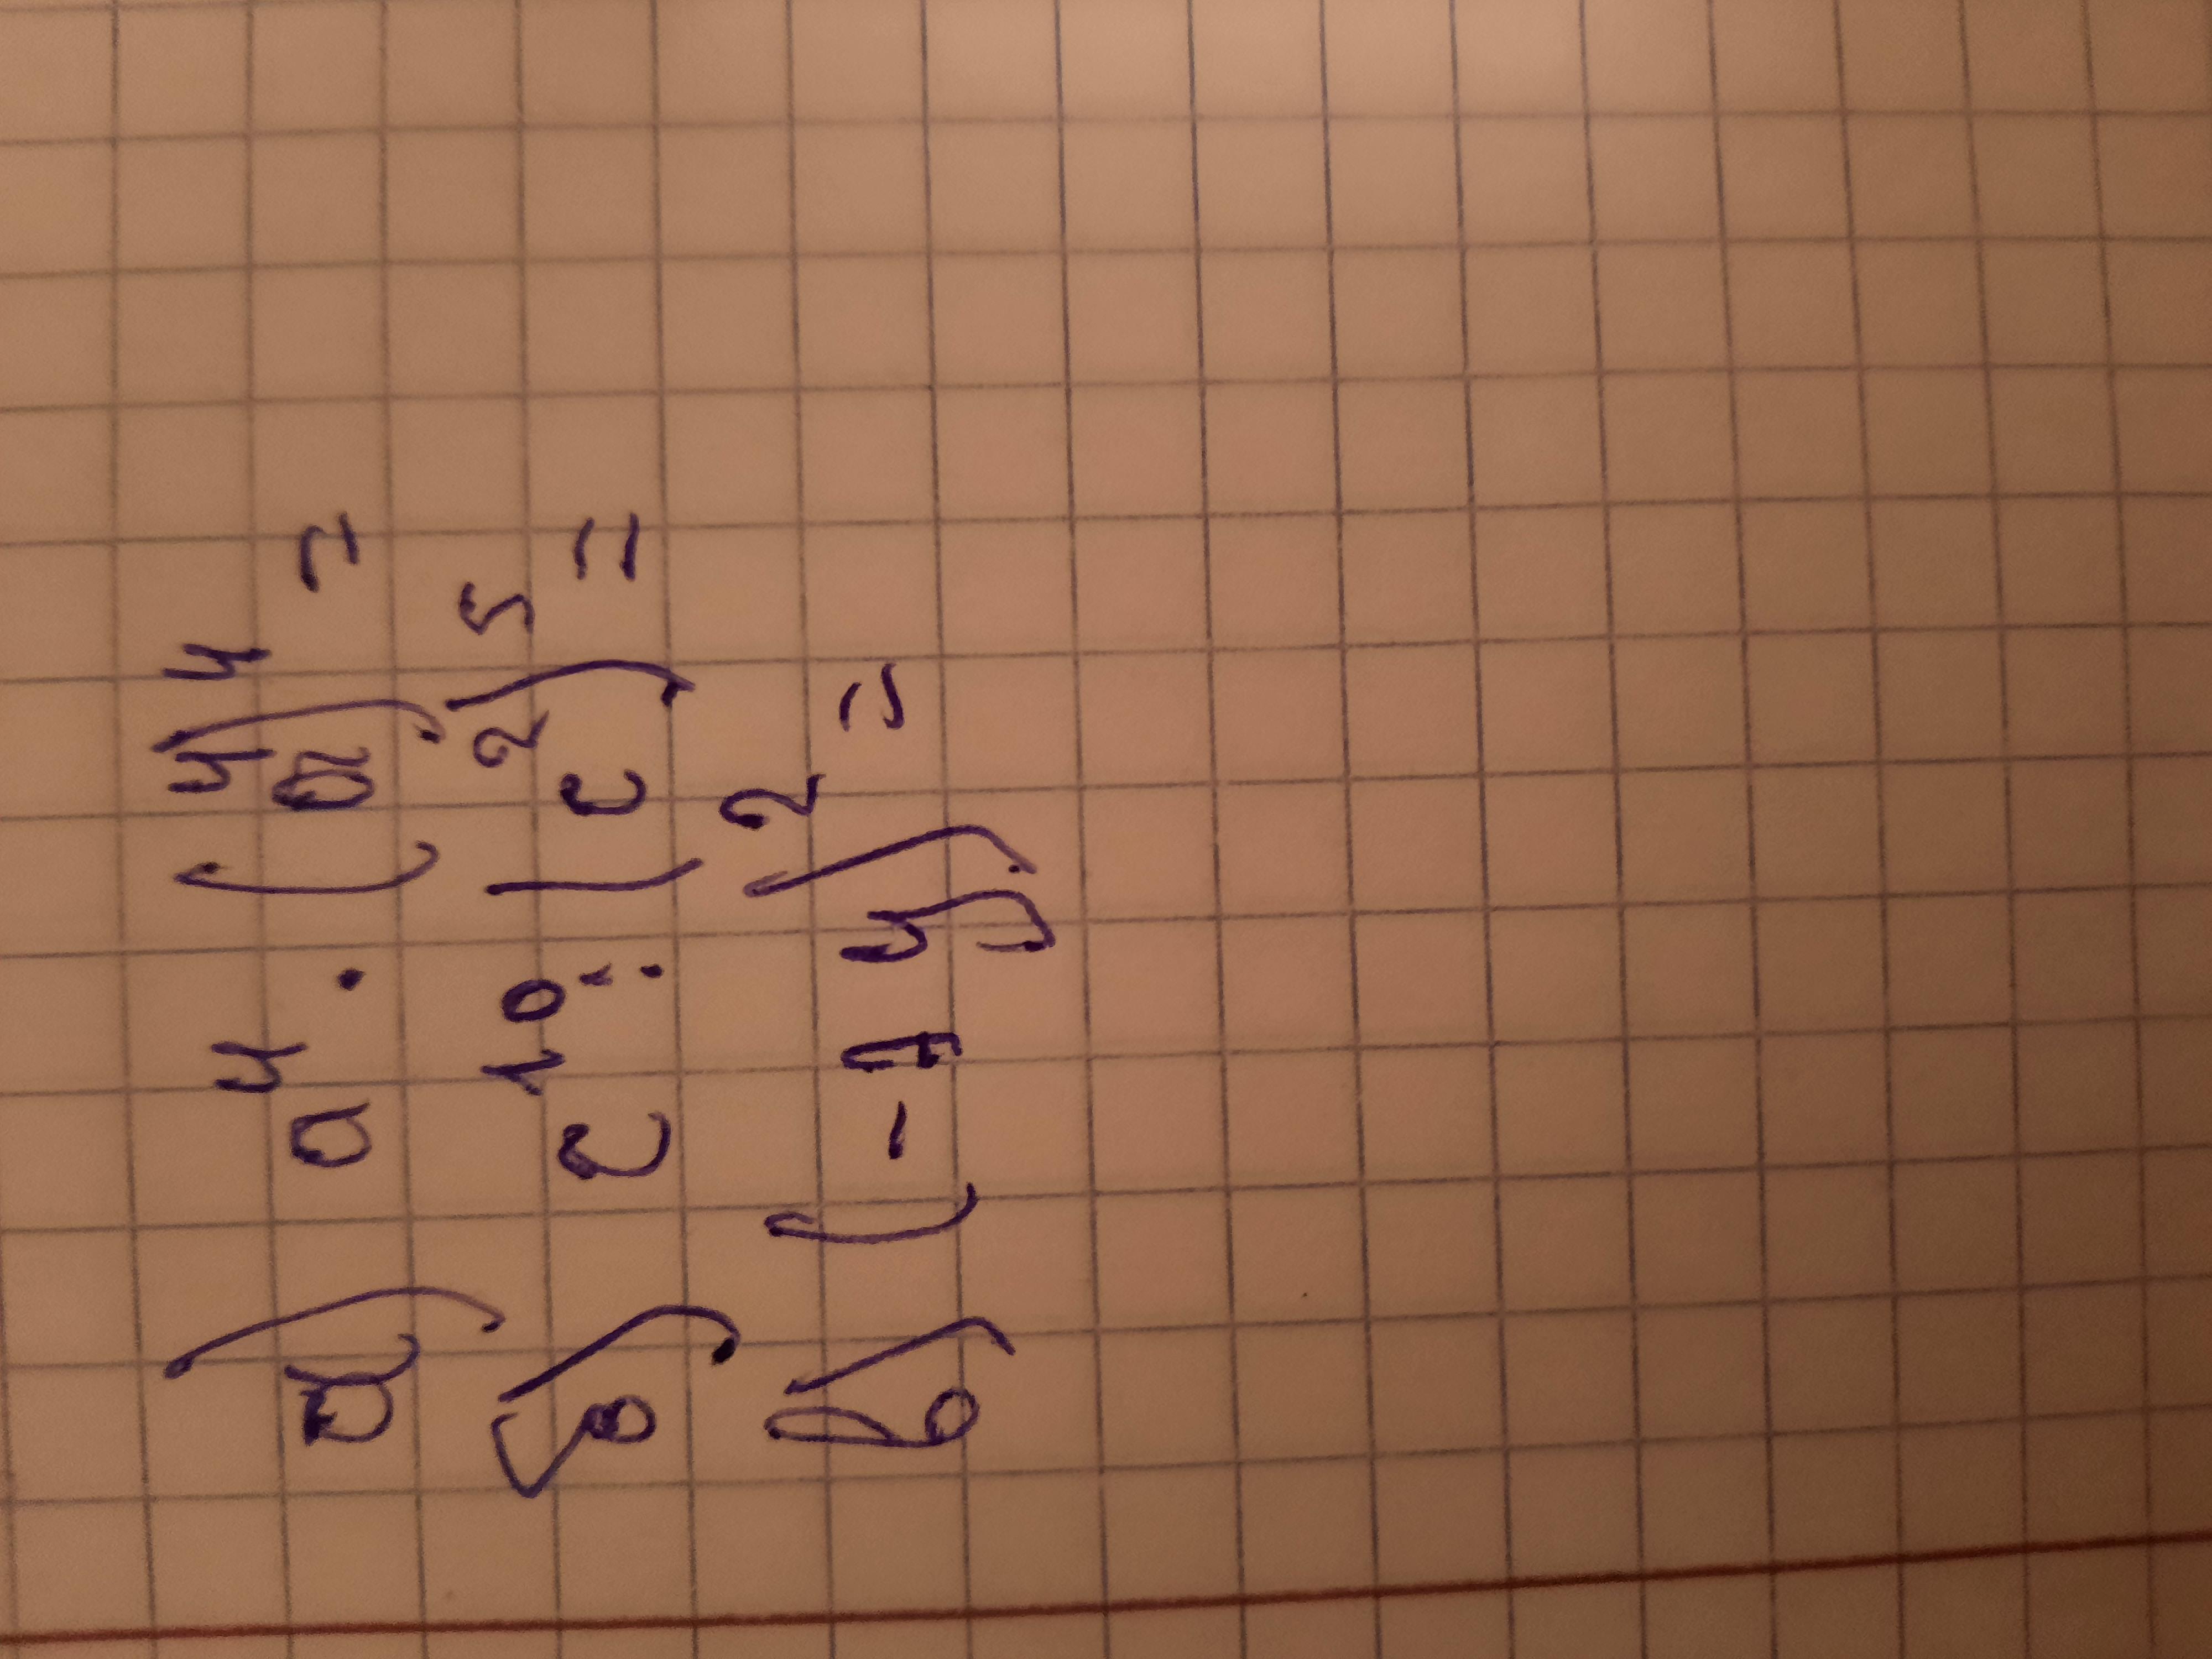 а) a⁴ · (a⁴)⁴ =
б) c¹⁰ : (c²)⁵ =
в) (-7y)² =